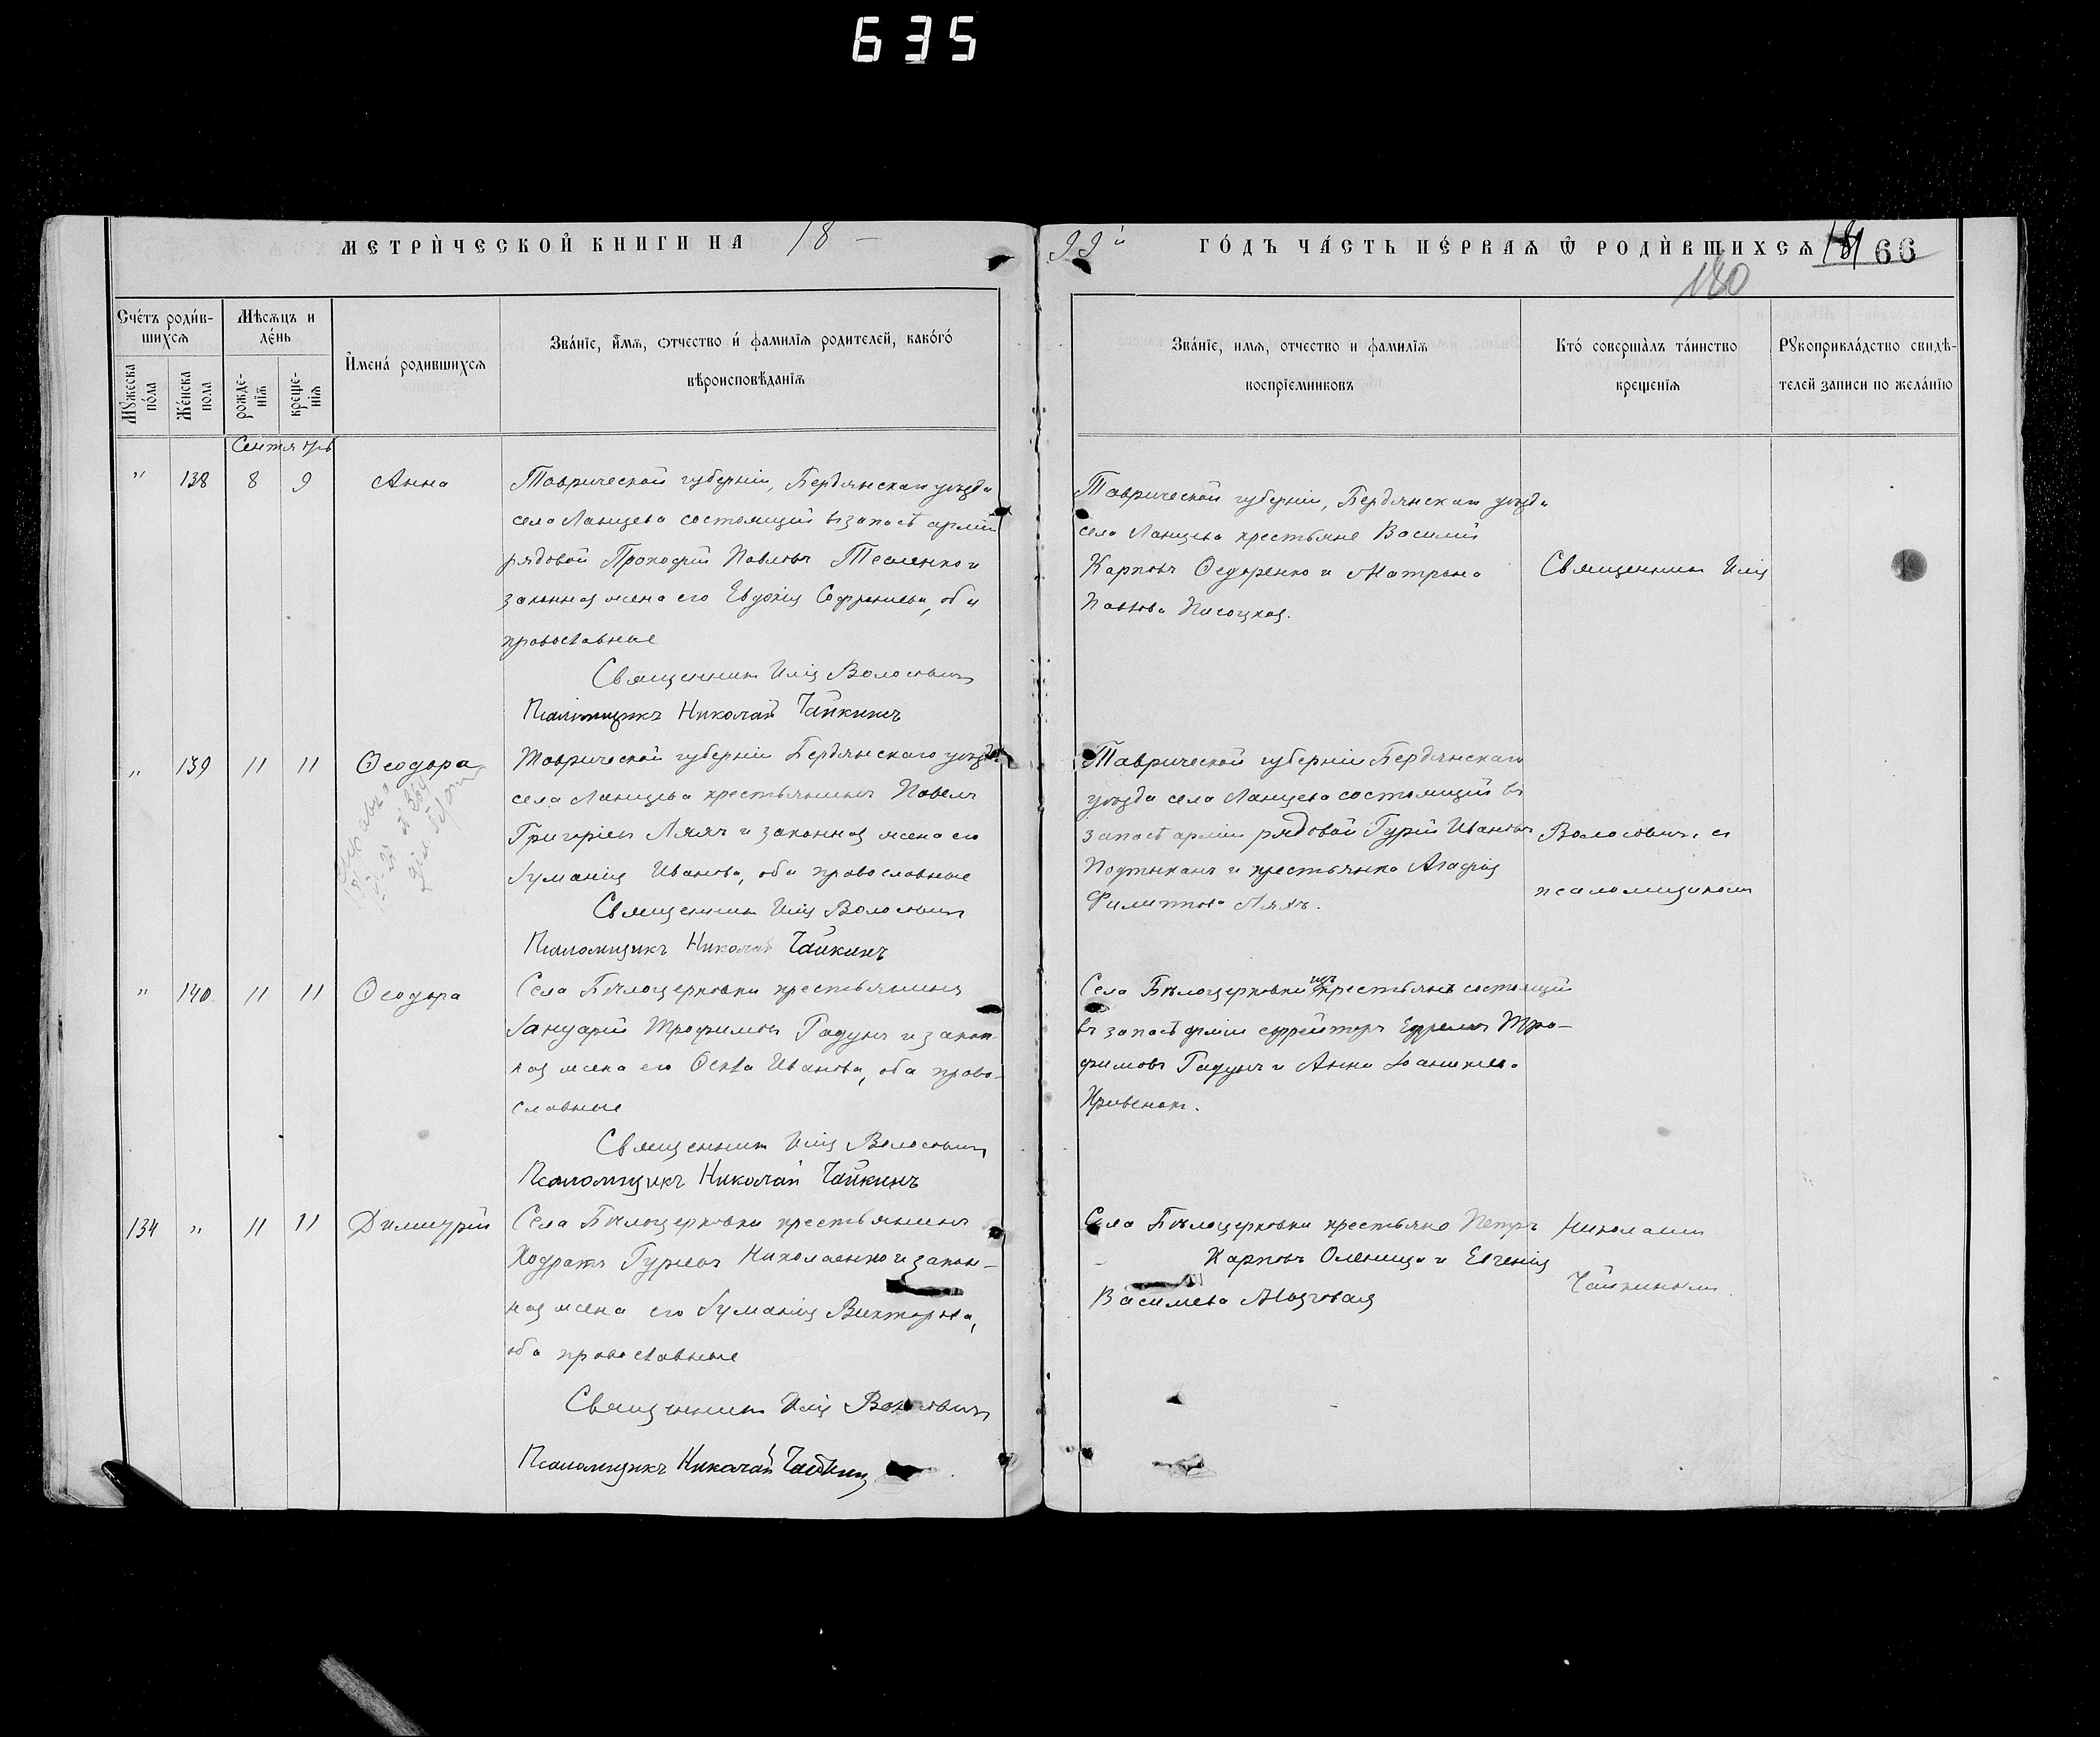 635
МЕТРИ́ЧЕСКОЙ КНИГИ НА 18 —
99й ГО́ДЪ ЧА́СТЬ ПЕ́РВАѦ Ѿ РОДИ́ВШИХСѦ 66
180
Сче́тъ роди́в-
шихсѧ
Мѣсѧцъ и
де́нь
И҆мена́ родившихсѧ
Зва́нїе, и҆́мѧ, ѻтчество и҆ фамилїѧ родителей, како́гѡ
вѣроисповѣданїѧ
Мꙋжеска
по́ла
Же́нска
пола
рожде-
нїѧ
креще-
нїѧ
Зва́нїе, имѧ, отчество и фамилїѧ
воспрїемниковъ
Кто́ соверша́лъ та́инство
крещенїѧ
Рꙋкоприкла́дство свидѣ-
телей записи по жела́нїю
Сентябрь
" 138 8 9 Анна
Таврической губерніи, Бердянскаго уѣзда
села Ланцева состоящій въ запасѣ арміи
рядовой Прокофій Павловъ Тесленко и
законная жена его Евдокія Софрониева, оба
православные
Священникъ Илія Волосовичъ
Псаломщикъ Николай Чайкинъ
Таврической губерніи, Бердянскаго уѣзда
села Ланцева крестьяне Василій
Карповъ Ѳедоренко и Матрона
Павлова Писоцкая.
Священникъ Илія
" 139 11 11 Ѳеодора
Таврической губерніи Бердянскаго уѣзда
села Ланцева крестьянинъ Павелъ
Григорьевъ Ляхъ и законная жена его
Іуліанія Иванова, оба православные
Священникъ Илія Волосовичъ
Псаломщикъ Николай Чайкинъ
Таврической губерніи Бердянскаго
уѣзда села Ланцева состоящій въ
запасѣ арміи рядовой Гурій Ивановъ
Подтыканъ и крестьянка Агафія
Филиппова Ляхъ.
Волосовичъ съ
псаломщикомъ
" 140 11 11 Ѳеодора
Села Бѣлоцерковки крестьянинъ
Іануарій Трофимовъ Гадунъ и закон-
ная жена его Ѳекла Иванова, оба право-
славные
Священникъ Илія Волосовичъ
Псаломщикъ Николай Чайкинъ
Села Бѣлоцерковки изъ крестьянъ состоящій
въ запасѣ арміи ефрейторъ Ефремъ Тро-
фимовъ Гадунъ и Анна
134 " 11 11 Димитрій
Села Бѣлоцерковки крестьянинъ
Кодратъ Гурьевъ Николаенко и закон-
ная жена его Іуліанія Викторова,
оба православные
Священникъ Илія Волосовичъ
Псаломщикъ Николай Чайкинъ
Села Бѣлоцерковки крестьяне Петръ
Карповъ Оленица и Евгенія
Васильева Мозговая
Николаемъ
Чайкинымъ.